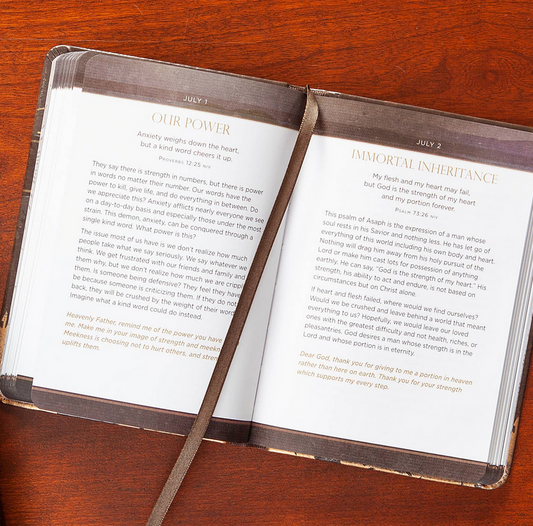 JULY 1
OUR POWER
Anxiety weighs down the heart,
but a kind word cheers it up.
PROVERBS 12:25 NIV
They say there is strength in numbers, but there is power
in words no matter their number. Our words have the
power to kill, give life, and do everything in between. Do
we appreciate this? Anxiety afflicts nearly everyone we see
on a day-to-day basis and especially those under the most
strain. This demon, anxiety, can be conquered through a
single kind word. What power is this?
The issue most of us have is we don't realize how much
people take what we say seriously. We say whatever we
think. We get frustrated with our friends and family and
them why, but we don't realize how much we are
them. Is someone being defensive? They feel they have
be because someone is criticizing them. If they do not
back, they will be crushed by the weight of their word
Imagine what a kind word could do instead.
Heavenly Father, remind me of the power you have
me. Make me in your image of strength and
Meekness is choosing not to hurt others, and
uplifts them.
JULY 2
IMMORTAL INHERITANCE
My flesh and my heart may fail,
but God is the strength of my heart
and my portion forever.
PSALM 73:26 NIV
This psalm of Asaph is the expression of a man whose
soul rests in his Savior and nothing less. He has let go of
everything of this world including his own body and heart.
Nothing will drag him away from his holy pursuit of the
Lord or make him cast lots for possession of anything
earthly. He can say, "God is the strength of my heart." His
strength, his ability to act and endure, is not based on
circumstances but on Christ alone.
If heart and flesh failed, where would we find ourselves?
Would we be crushed and leave behind a world that meant
everything to us? Hopefully, we would leave our loved
ones with the greatest difficulty and not health, riches, or
pleasantries. God desires a man whose strength is in the
Lord and whose portion is in eternity.
Dear God, thank you for giving to me a portion in heaven
rather than here on earth. Thank you for your strength
which supports my every step.